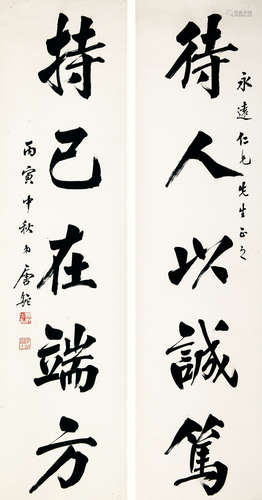 待人以誠篤
永遠仁兄先生正之
持己在端方
丙寅中秋弟唐駝